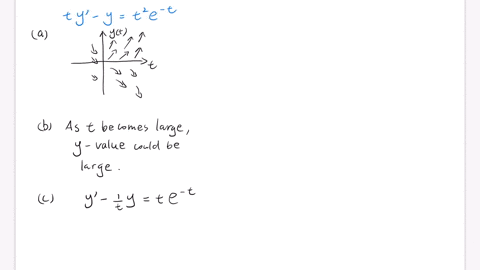 t y′ − y = t² e^{-t}
(a)
y(t)
t
(b) As t becomes large,
y - value could be
large.
(c) y′ − 1/t y = t e^{-t}